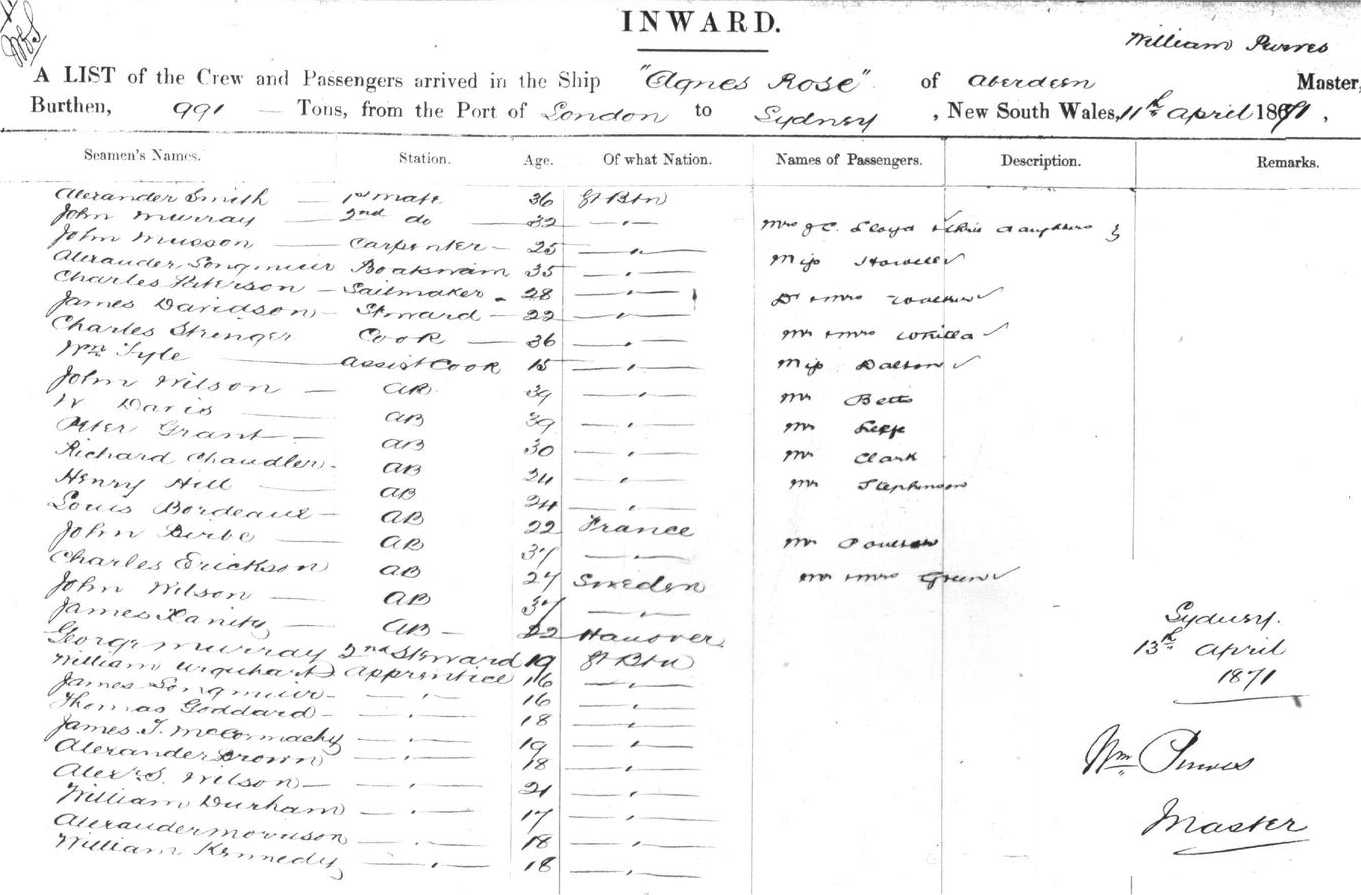 INWARD.
William Purves
A LIST of the Crew and Passengers arrived in the Ship "Agnes Rose" of Aberdeen Master,
Burthen, 991 — Tons, from the Port of London to Sydney, New South Wales, 11th April 1871,
Seamen's Names. Station. Age. Of what Nation. Names of Passengers. Description. Remarks.
Alexander Smith — 1st Mate 36 Gt Btn
John Murray — 2nd do — 32 — " —
Mrs J C Lloyd & three daughters
John Musson — Carpenter — 25 — " —
Alexander Longmuir Boatswain 35 — " —
Miss Howell
Charles Peterson — Sailmaker 28 — " —
Dr & Mrs Walker
James Davidson — Steward — 22 — " —
Charles Stringer Cook — 36 — " —
Mr & Mrs
Wm Tyle — Assist Cook 15 — " —
Miss Dalton
John Wilson — AB 39 — " —
Mr Betts
W Davis — AB 39 — " —
Mr
Peter Grant — AB 30 — " —
Mr Clark
Richard Chandler — AB 24 — " —
Mr Stephinson
Henry Hill — AB 24 — " —
Louis Bordeaux — AB 22 France
John — AB 37 — " —
Mr Poulson
Charles Erickson AB 27 Sweden
Mr & Mrs Green
John Wilson — AB 37 — " —
James AB — 22 Hanover
George Murray 2nd Steward 19 Gt Btn
William Urquhart Apprentice 16 — " —
James Longmuir — " — 16 — " —
Thomas Goddard — " — 18 — " —
James T. McCormachy — " — 19 — " —
Alexander Brown — " — 18 — " —
Alexr S. Wilson — " — 21 — " —
William Durham — " — 17 — " —
Alexander Morrison — " — 18 — " —
William Kennedy — " — 18 — " —
Sydney.
13th April
1871
Wm Purves
Master